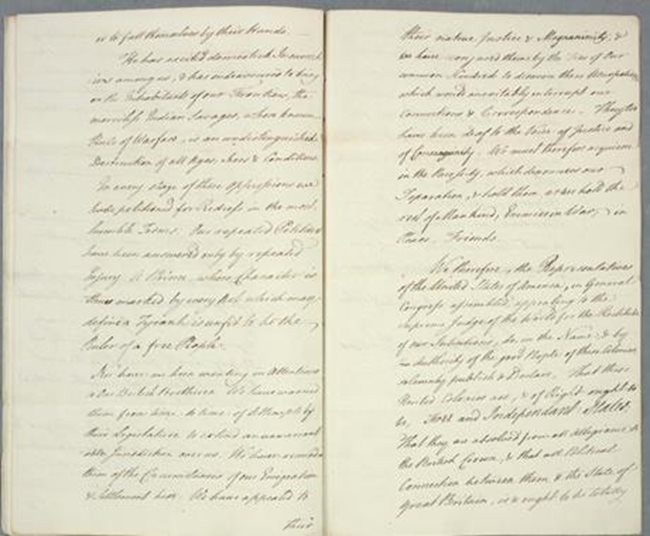 or to fall themselves by their Hands.
He has excited domestick Insurrect
ions amongst us, & has endeavoured to bring
on the Inhabitants of our Frontiers, the
merciless Indian Savages, whose known
Rule of Warfare, is an undistinguished
Destruction of all Ages, Sexes & Conditions.
In every stage of these Oppressions we
have petitioned for Redress in the most
humble Terms. Our repeated Petitions
have been answered only by repeated
Injury. A Prince, whose Character is
thus marked by every Act which may
define a Tyrant, is unfit to be the
Ruler of a free People.
Nor have we been wanting in Attentions
to our British Brethren. We have warned
them from time to time of Attempts by
their Legislature to extend an unwarrant
able Jurisdiction over us. We have reminded
them of the Circumstances of our Emigration
& Settlement here. We have appealed to
their
their native Justice & Magnanimity, &
we have conjured them by the Ties of our
common Kindred to disavow these Usurpations,
which would inevitably interrupt our
Connections & Correspondence. They too
have been deaf to the Voice of Justice and
of Consanguinity. We must therefore acquiesce
in the Necessity, which denounces our
Separation, & hold them, as we hold the
rest of Mankind, Enemies in War, in
Peace, Friends.
We therefore, the Representatives
of the United States of America, in General
Congress assembled, appealing to the
supreme Judge of the World for the Rectitude
of our Intentions, do, in the Name, & by
the Authority of the good People of these Colonies,
solemnly publish & Declare, That these
United Colonies are, & of Right ought to
be, Free and Independant States,
That they are absolved from all Allegiance to
the British Crown, & that all Political
Connection between them & the State of
Great Britain, is & ought to be totally